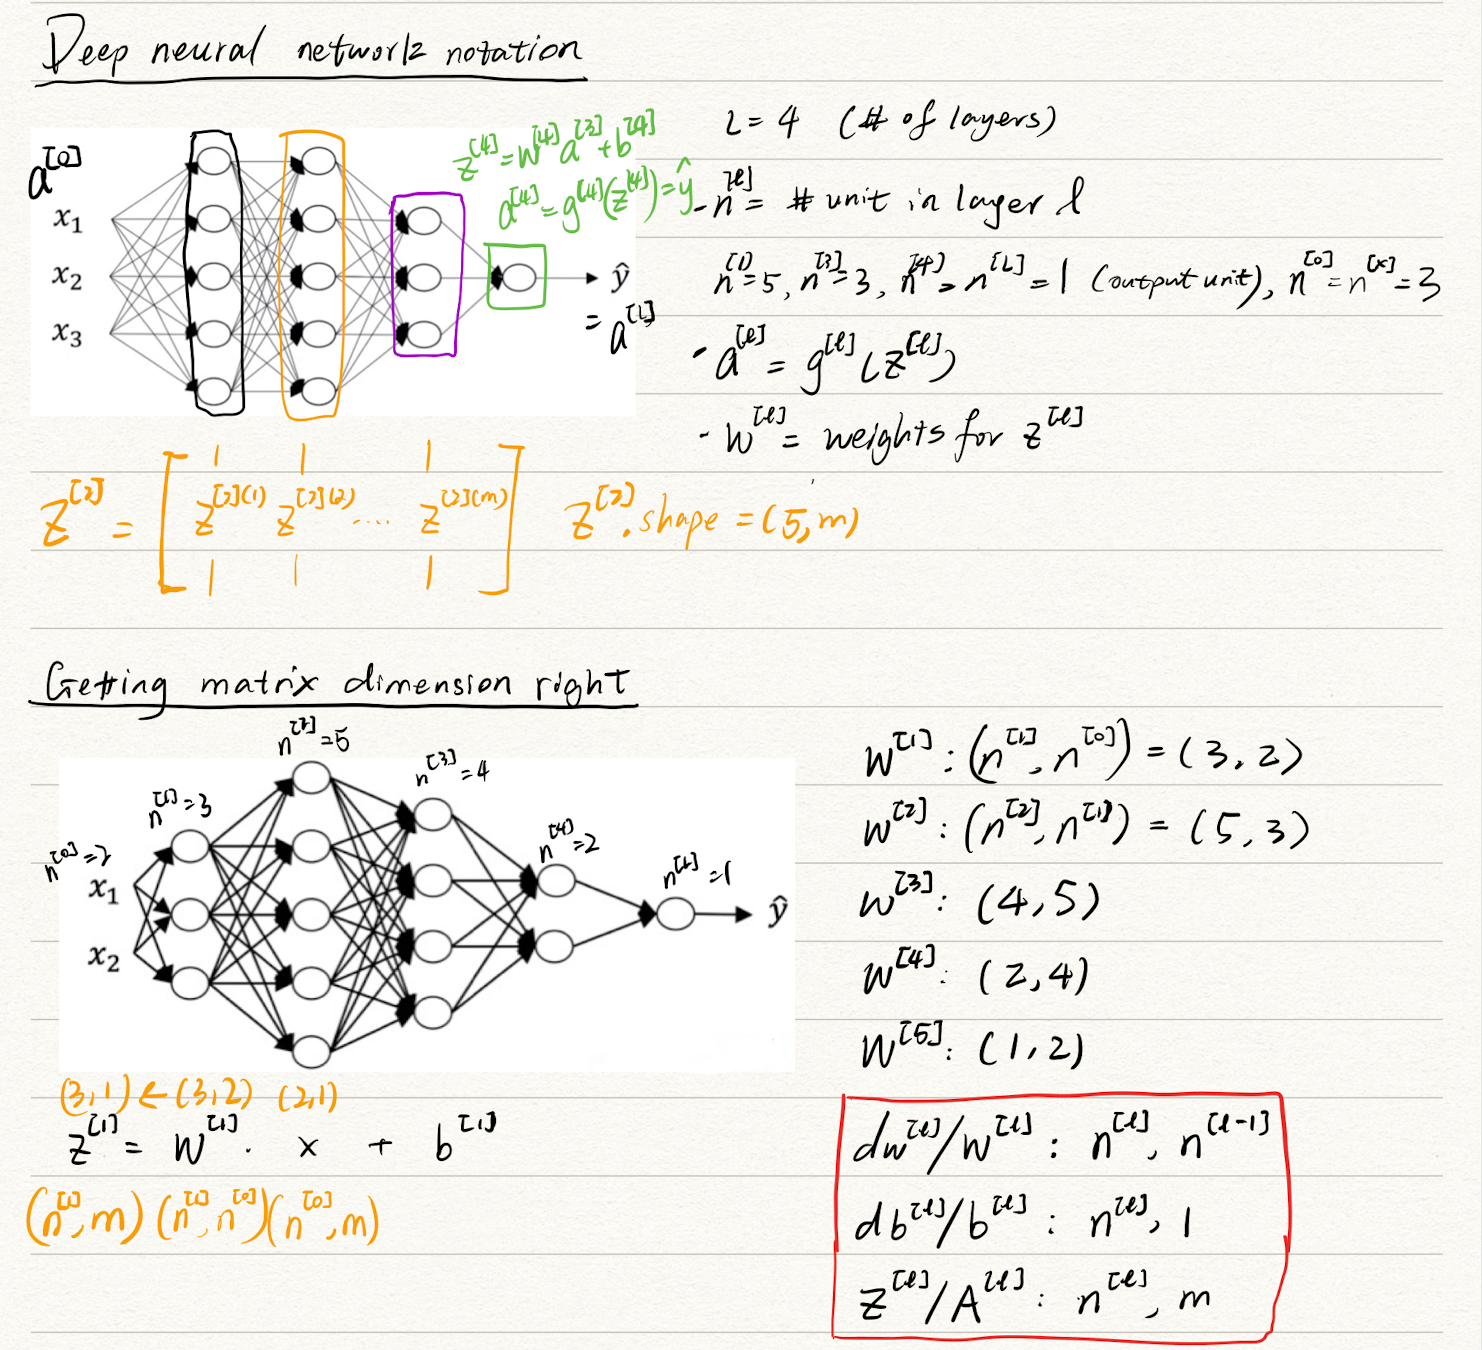 Deep neural network notation
L = 4 (# of layers)
z^[4] = w^[4] a^[3] + b^[4]
a^[4] = g^[4](z^[4]) = ŷ
a^[0]
x₁
x₂
x₃
ŷ
= a^[L]
- n^[l] = # unit in layer l
n^[1] = 5, n^[3] = 3, n^[4] = n^[L] = 1 (output unit), n^[0] = n^[x] = 3
· a^[l] = g^[l](z^[l])
- w^[l] = weights for z^[l]
Z^[2] = [ z^[2](1) z^[2](2) .... z^[2](m) ] Z^[2].shape = (5, m)
Getting matrix dimension right
n^[0] = 2
n^[1] = 3
n^[2] = 5
n^[3] = 4
n^[4] = 2
n^[L] = 1
x₁
x₂
ŷ
(3,1) ← (3,2) (2,1)
z^[1] = w^[1] · x + b^[1]
(n^[1], m) (n^[1], n^[0]) (n^[0], m)
w^[1] : (n^[1], n^[0]) = (3, 2)
w^[2] : (n^[2], n^[1]) = (5, 3)
w^[3] : (4, 5)
w^[4] : (2, 4)
w^[5] : (1, 2)
dw^[l]/w^[l] : n^[l], n^[l-1]
db^[l]/b^[l] : n^[l], 1
z^[l]/A^[l] : n^[l], m